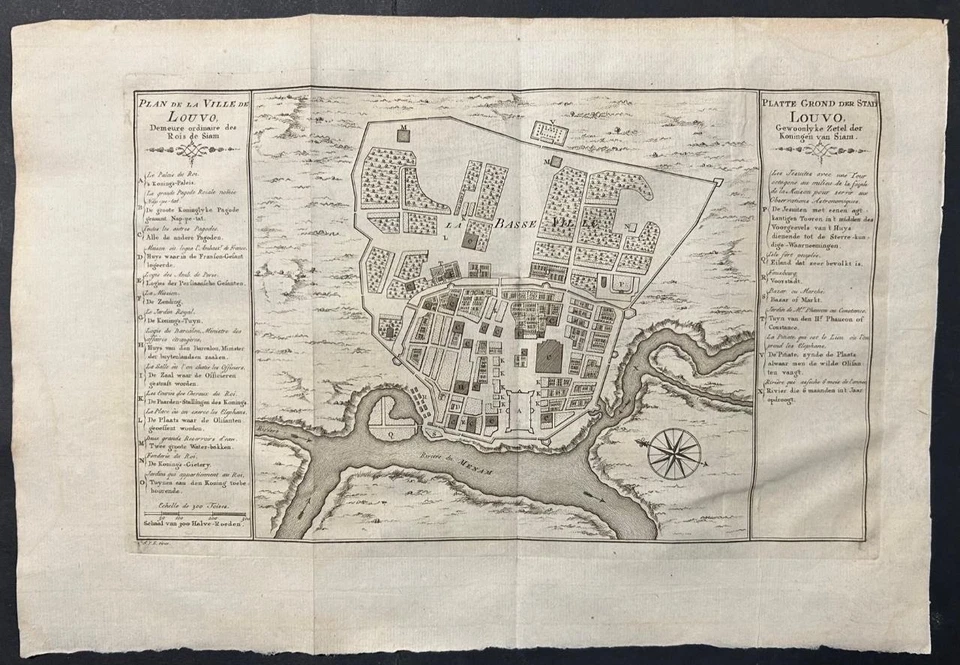 PLAN DE LA VILLE DE
LOUVO.
Demeure ordinaire des
Rois de Siam
A Le Palais du Roi.
's Konings-Paleis.
B La grande Pagode Roiale
Nap-pe-tat.
De groote Koninglyke Pagode
genaamt Nap-pe-tat.
C Toutes les autres Pagodes.
Alle de andere Pagoden.
D Maison où logea l'Ambass.r de France.
Huys waar in de Fransen-Gesant
logeerde.
E Logis des Amb. de Perse.
Logies der Persiaansche Gesanten.
F
G Le Jardin Royal.
De Konings-Tuyn.
H Logis du Barcalon, Ministre des
affaires étrangères.
Huys van den Barcalon, Minister
der buytenlandsen zaaken.
I La Salle où l'on chatie les Officiers.
De Zaal waar de Officieren
gestraft worden.
K Les Ecuries des Chevaux du Roi.
De Paarden-Stallingen des Konings
L La Place où on exerce les Elephans.
De Plaats waar de Olifanten
geoeffent worden.
M Deux grands Reservoirs d'eau.
Twee groote Water-bekken.
N Fonderie du Roi.
De Konings-Gietery.
O Jardins qui appartiennent au Roi.
Tuynen aan den Koning toebe-
hoorende.
Echelle de 300 Toises.
Schaal van 300 Halve-Roeden.
PLATTE GROND DER STAD
LOUVO.
Gewoonlyke Zetel der
Koningen van Siam.
P Les Jesuites avec une Tour
octogone au milieu de la façade
de la Maison pour servir aux
Observations Astronomiques.
De Jesuiten met eenen agt-
kantigen Tooren in't midden des
Voorgevels van't Huys
dienende tot de Sterre-kun-
dige-Waarnemingen.
Q Isle fort peuplée.
Eiland dat zeer bevolkt is.
R Fauxbourg.
Voorstadt.
S Bazar, ou Marché.
Bazar of Markt.
T Jardin de Mr. Phauron ou Constance.
Tuyn van den Hr. Phauron of
Constance.
V La Pitiate qui est le Lieu où l'on
prend les Elephans.
De Pitiate, zynde de Plaats
alwaar men de wilde Olifan-
ten vangt.
X
Rivier die 6 maanden in't Jaar
opdroogt.
LA BASSE VILLE
M
X
M
N
L
C
P
A
Q
Riviere
Riviere de MENAM